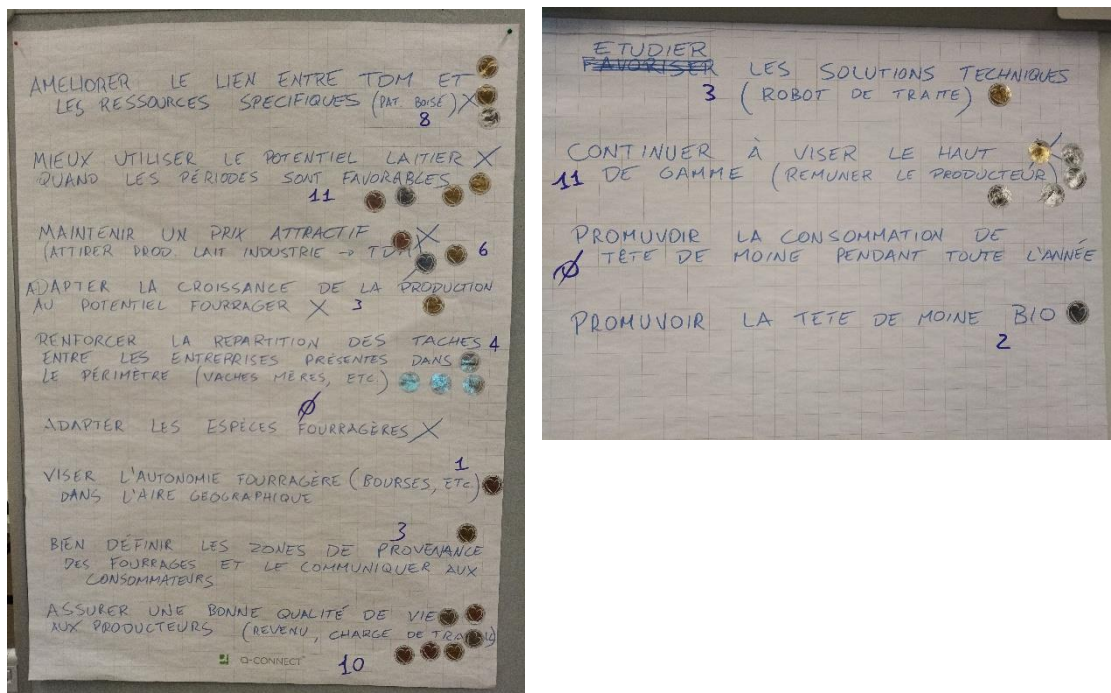 AMELIORER LE LIEN ENTRE TDM ET
LES RESSOURCES SPECIFIQUES (PAT. BOISÉ) X
8
MIEUX UTILISER LE POTENTIEL LAITIER X
QUAND LES PÉRIODES SONT FAVORABLES
11
MAINTENIR UN PRIX ATTRACTIF X
(ATTIRER PROD. LAIT INDUSTRIE → TDM) 6
ADAPTER LA CROISSANCE DE LA PRODUCTION
AU POTENTIEL FOURRAGER X 3
RENFORCER LA REPARTITION DES TACHES 4
ENTRE LES ENTREPRISES PRÉSENTES DANS
LE PÉRIMÈTRE (VACHES MÈRES, ETC.)
Ø
ADAPTER LES ESPÈCES FOURRAGÈRES X
1
VISER L'AUTONOMIE FOURRAGÈRE (BOURSES, ETC.)
DANS L'AIRE GEOGRAPHIQUE
3
BIEN DÉFINIR LES ZONES DE PROVENANCE
DES FOURRAGES ET LE COMMUNIQUER AUX
CONSOMMATEURS
ASSURER UNE BONNE QUALITÉ DE VIE
AUX PRODUCTEURS (REVENU, CHARGE DE TRAVAIL)
Q-CONNECT
10
ETUDIER
FAVORISER LES SOLUTIONS TECHNIQUES
3 (ROBOT DE TRAITE)
CONTINUER À VISER LE HAUT
11 DE GAMME (REMUNER LE PRODUCTEUR)
PROMUVOIR LA CONSOMMATION DE
Ø TÊTE DE MOINE PENDANT TOUTE L'ANNÉE
PROMUVOIR LA TETE DE MOINE BIO
2